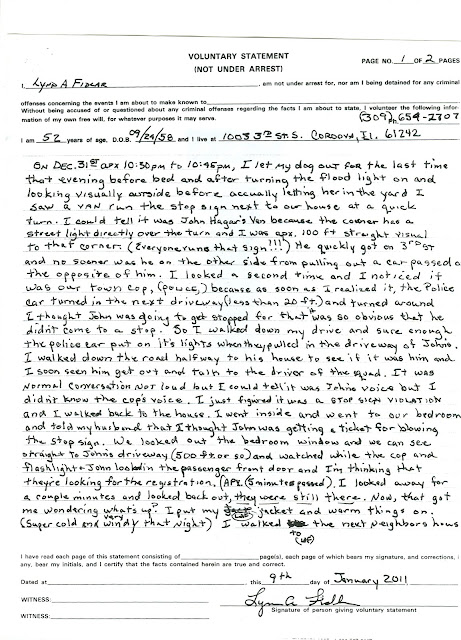 VOLUNTARY STATEMENT
(NOT UNDER ARREST)
PAGE NO. 1 OF 2 PAGES
I, Lynda A Fidlar, am not under arrest for, nor am I being detained for any criminal
offenses concerning the events I am about to make known to
Without being accused of or questioned about any criminal offenses regarding the facts I am about to state, I volunteer the following infor-
mation of my own free will, for whatever purposes it may serve. (309) 654-2707
I am 52 years of age, D.O.B. 09/24/58, and I live at 1003 3rd St S. Cordova, Il. 61242
ON DEC. 31st apx 10:30pm to 10:45pm, I let my dog out for the last time
that evening before bed and after turning the flood light on and
looking visually outside before accually letting her in the yard I
saw a van run the stop sign next to our house at a quick
turn. I could tell it was John Hagar's Van because the corner has a
street light directly over the turn and I was apx. 100 ft straight visual
to that corner. (Everyone runs that sign!!!) He quickly got on 3rd ST
and no sooner was he on the other side from pulling out a car passed on
the opposite of him. I looked a second time and I noticed it
was our town cop, (police,) because as soon as I realized it, the Police
car turned in the next driveway (less than 20 ft.) and turned around
I thought John was going to get stopped for that was so obvious that he
didn't come to a stop. So I walked down my drive and sure enough
the police car put on it's lights when they pulled in the driveway of Johns.
I walked down the road halfway to his house to see if it was him and
I soon seen him get out and talk to the driver of the squad. It was
normal conversation not loud but I could tell it was Johns voice but I
didn't know the cop's voice. I just figured it was a STOP SIGN VIOLATION
and I walked back to the house. I went inside and went to our bedroom
and told my husband that I thought John was getting a ticket for blowing
the stop sign. We looked out the bedroom window and we can see
straight to John's driveway (500 ft or so) and watched while the cop and
flashlight + John looked in the passenger front door and I'm thinking that
they're looking for the registration. (APX. 5 minutes passed). I looked away for
a couple minutes and looked back out, they were still there. Now, that got
me wondering what's up? I put my jacket and warm things on.
(Super cold and windy that night) I walked to the next neighbors hous
(WE)
I have read each page of this statement consisting of page(s), each page of which bears my signature, and corrections, i
any, bear my initials, and I certify that the facts contained herein are true and correct.
Dated at, this 9th day of January 2011
WITNESS:
WITNESS:
Signature of person giving voluntary statement